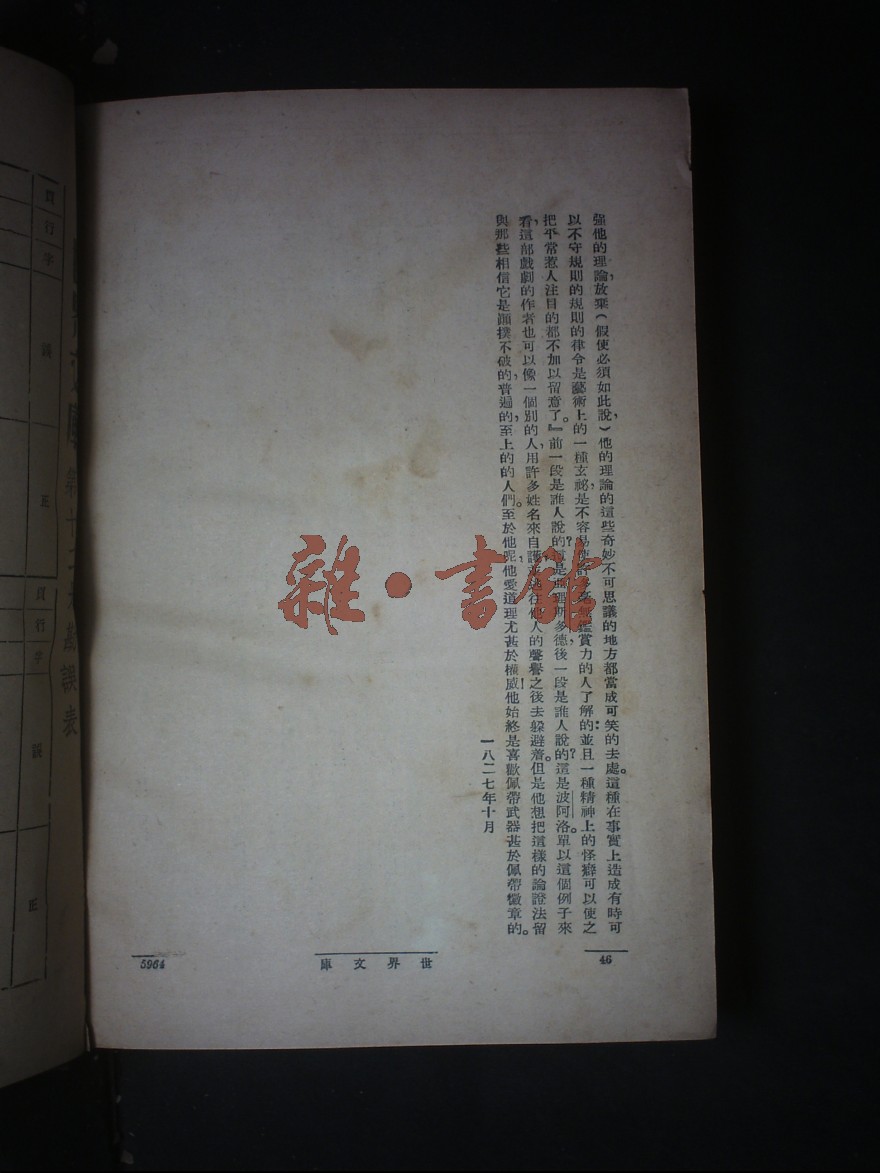 強他的理論,放棄(假使必須如此說,)他的理論的這些奇妙不可思議的地方都當成可笑的去處。這種在事實上造成有時可
以不守規則的規則的律令是藝術上的一種玄祕,是不容易使許多毫無鑑賞力的人了解的:並且一種精神上的怪癖可以使之
把平常惹人注目的都不加以留意了。』前一段是誰人說的?這是亞里斯多德,後一段是誰人說的?這是波阿洛。單以這個例子來
看,這部戲劇的作者也可以像一個別的人,用許多姓名來自護,並逃往他人的聲譽之後去躲避着。但是他想把這樣的論證法留
與那些相信它是顚撲不破的,普遍的,至上的的人們。至於他呢,他愛道理尤甚於權威,他始終是喜歡佩帶武器甚於佩帶徽章的。
一八二七年十月
46
世界文庫
5964
雜·書館
頁 行 字 誤 正
頁 行 字 誤 正
誤表